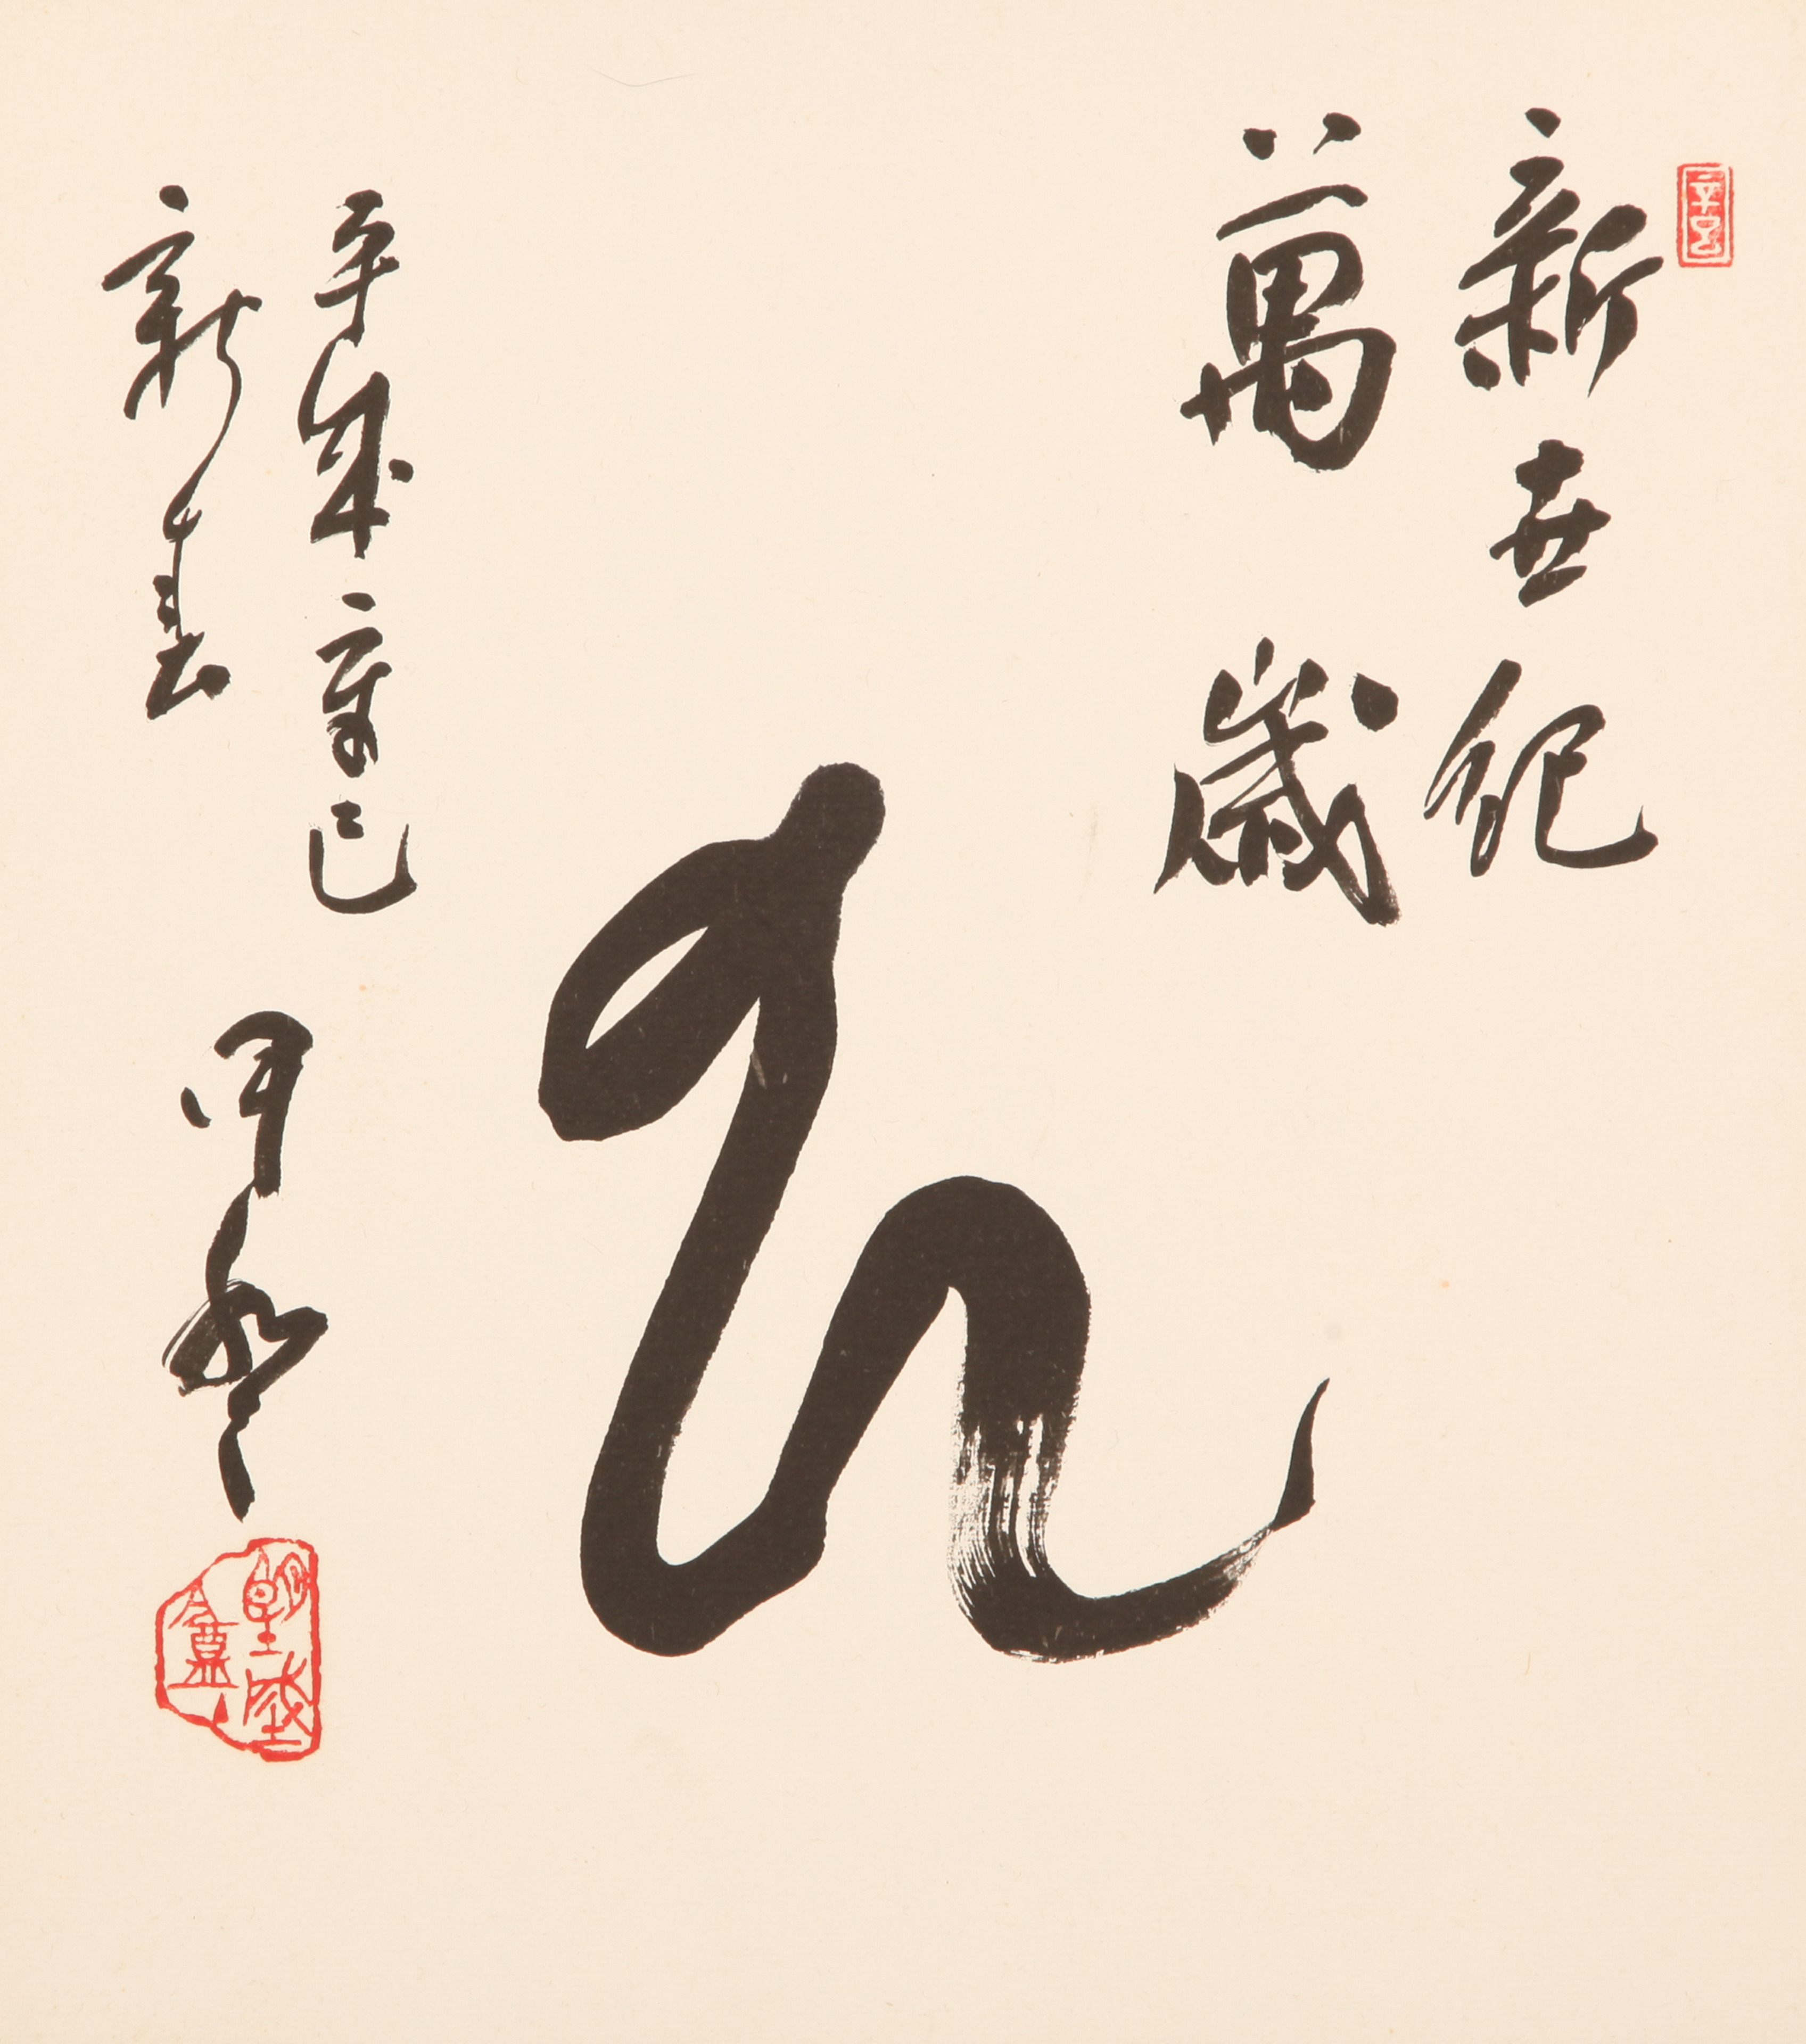 新世紀
萬歳
巳
平成辛巳
新春